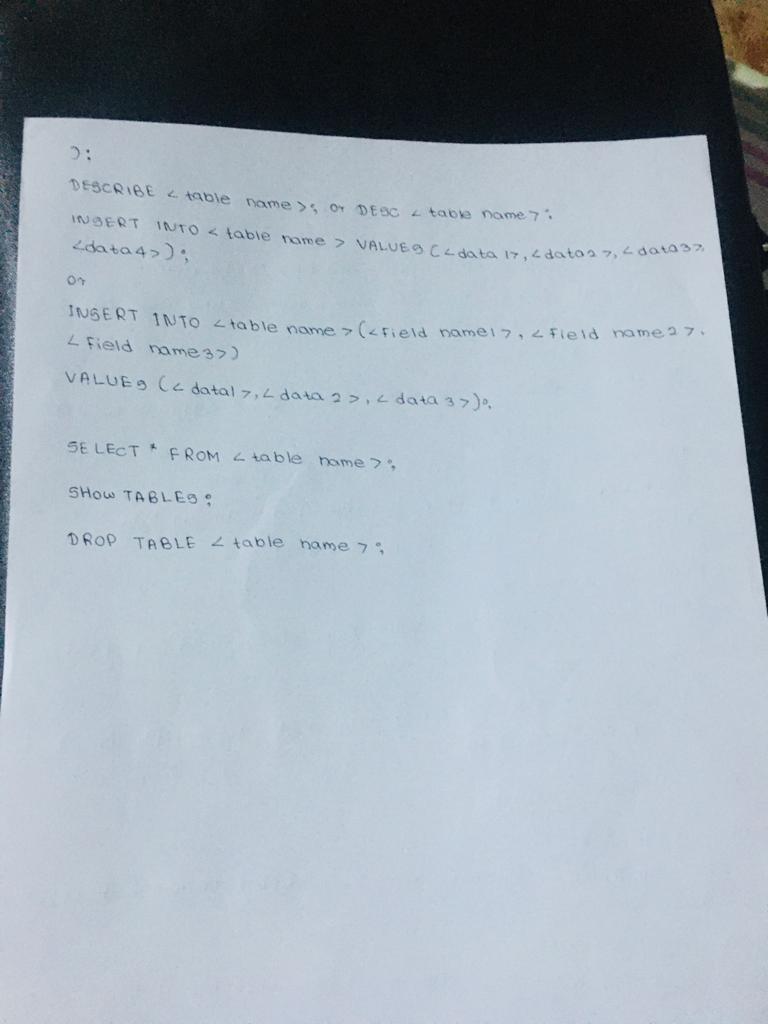 );
DESCRIBE < table name >; or DESC < table name >;
INSERT INTO < table name > VALUES (<data 1>, <data2>, <data3>,
<data4>);
or
INSERT INTO <table name> (<field name1>, < field name2>,
< field name3>)
VALUES (< data1>, < data 2>, < data 3>);
SELECT * FROM < table name >;
SHOW TABLES;
DROP TABLE < table name >;